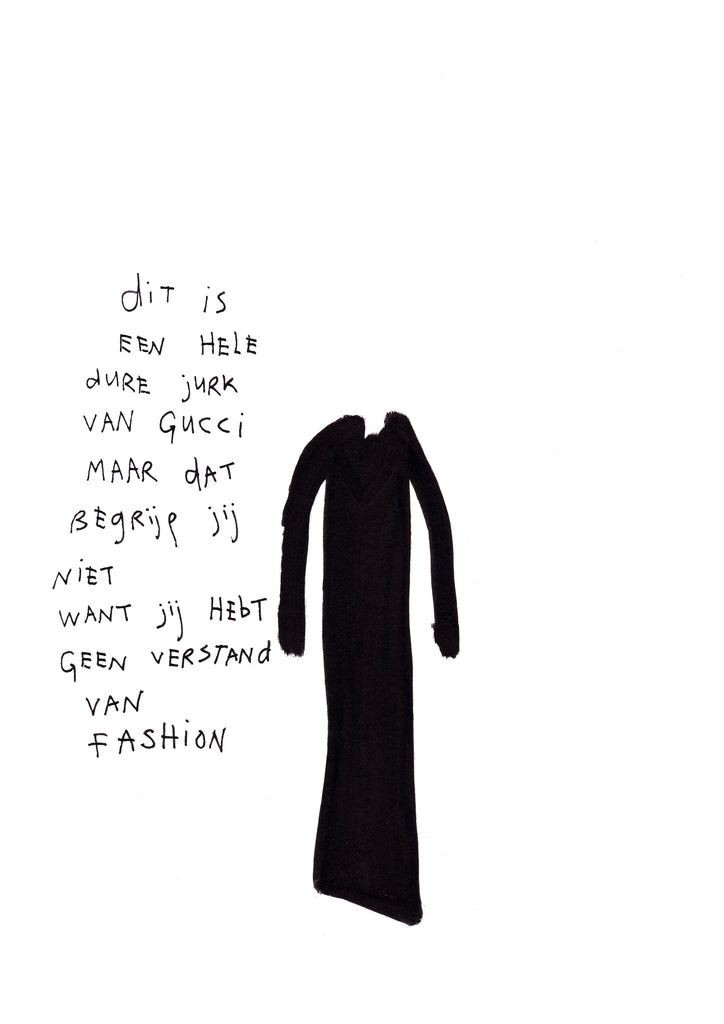 dit is
EEN HELE
dURE jURK
VAN GUCCi
MAAR dAT
BEgRijp jij
NiET
WANT jij HEbT
GEEN VERSTANd
VAN
FASHiON